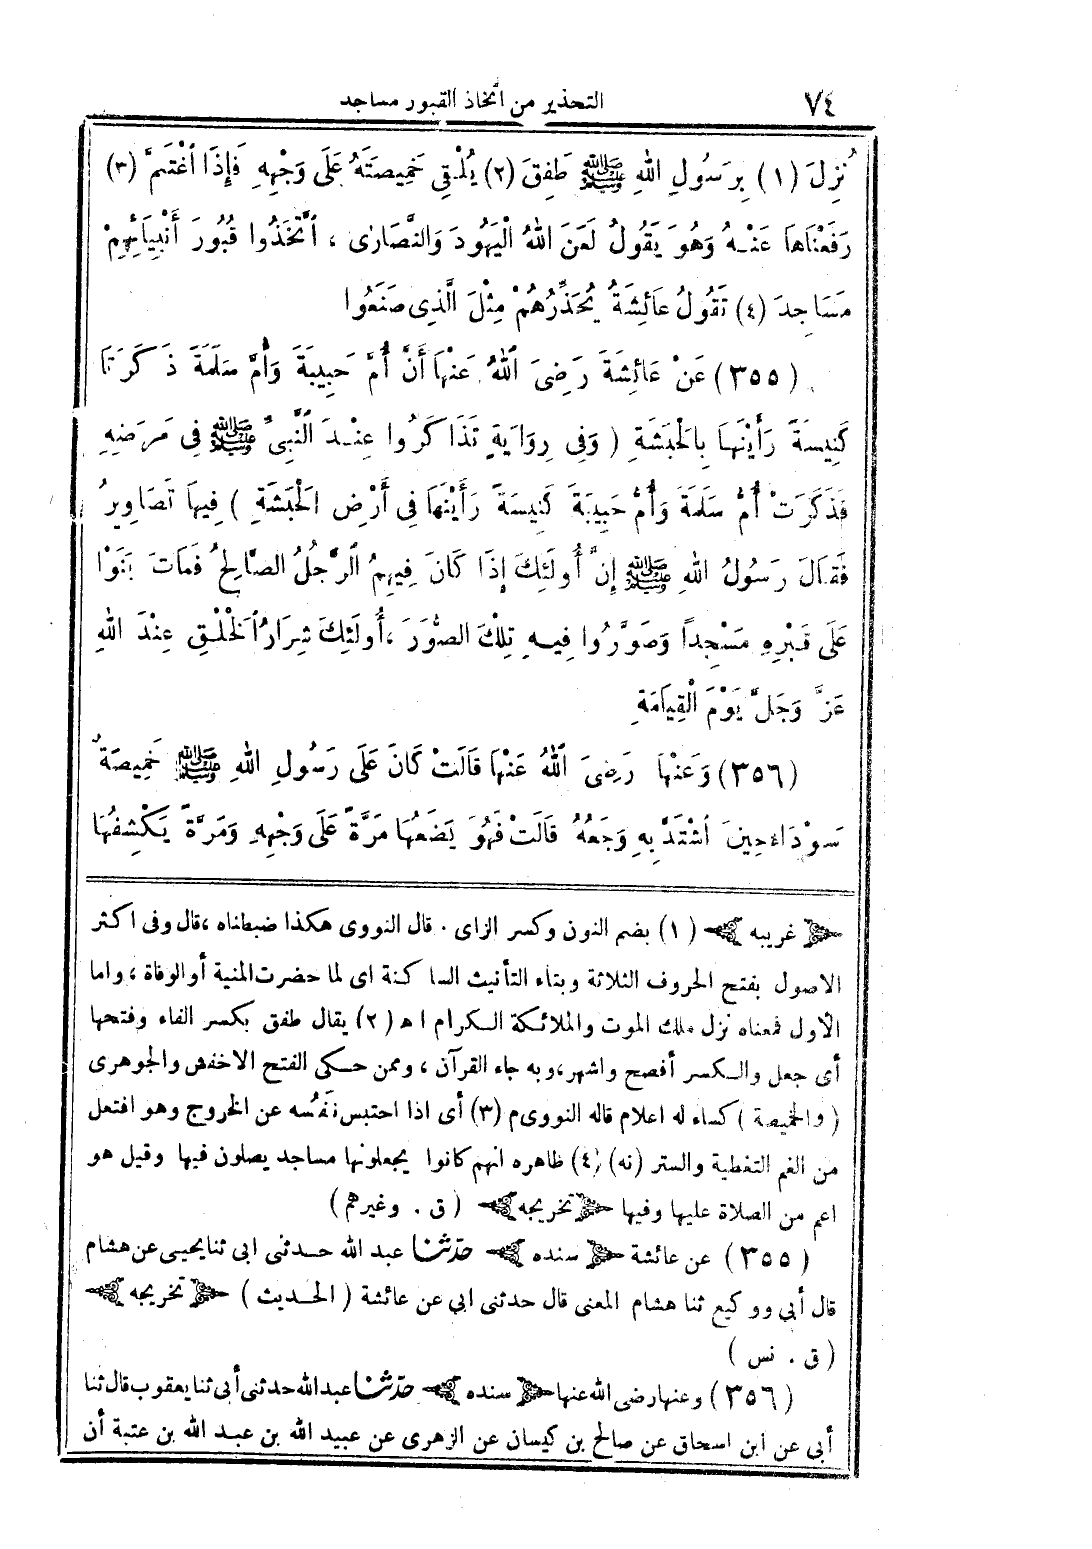 ٧٤ التحذير من اتخاذ القبور مساجد
نُزِلَ (١) بِرَسُولِ اللهِ ﷺ طَفِقَ (٢) يُلْقِي خَمِيصَتَهُ عَلَى وَجْهِهِ فَإِذَا اغْتَمَّ (٣)
رَفَعْنَاهَا عَنْهُ وَهُوَ يَقُولُ لَعَنَ اللهُ الْيَهُودَ وَالنَّصَارَى ، اتَّخَذُوا قُبُورَ أَنْبِيَائِهِمْ
مَسَاجِدَ (٤) تَقُولُ عَائِشَةُ يُحَذِّرُهُمْ مِثْلَ الَّذِى صَنَعُوا
(٣٥٥) عَنْ عَائِشَةَ رَضِىَ اللهُ عَنْهَا أَنَّ أُمَّ حَبِيبَةَ وَأُمَّ سَلَمَةَ ذَكَرَتَا
كَنِيسَةً رَأَيْنَهَا بِالْحَبَشَةِ ( وَفِى رِوَايَةٍ تَذَاكَرُوا عِنْدَ النَّبِىِّ ﷺ فِى مَرَضِهِ
فَذَكَرَتْ أُمُّ سَلَمَةَ وَأُمُّ حَبِيبَةَ كَنِيسَةً رَأَيْنَهَا فِى أَرْضِ الْحَبَشَةِ ) فِيهَا تَصَاوِيرُ
فَقَالَ رَسُولُ اللهِ ﷺ إِنَّ أُولَئِكَ إِذَا كَانَ فِيهِمُ الرَّجُلُ الصَّالِحُ فَمَاتَ بَنَوْا
عَلَى قَبْرِهِ مَسْجِداً وَصَوَّرُوا فِيهِ تِلْكَ الصُّوَرَ ، أُولَئِكَ شِرَارُ الْخَلْقِ عِنْدَ اللهِ
عَزَّ وَجَلَّ يَوْمَ الْقِيَامَةِ
(٣٥٦) وَعَنْهَا رَضِىَ اللهُ عَنْهَا قَالَتْ كَانَ عَلَى رَسُولِ اللهِ ﷺ خَمِيصَةٌ
سَوْدَاءُ حِينَ اشْتَدَّ بِهِ وَجَعُهُ قَالَتْ فَهُوَ يَضَعُهَا مَرَّةً عَلَى وَجْهِهِ وَمَرَّةً يَكْشِفُهَا
غريبه (١) بضم النون وكسر الزاى . قال النووى هكذا ضبطناه ، قال وفى اكثر
الاصول بفتح الحروف الثلاثة وبتاء التأنيث الساكنة اى لما حضرت المنية أو الوفاة ، واما
الأول فمعناه نزل ملك الموت والملائكة الكرام اه (٢) يقال طفق بكسر الفاء وفتحها
أى جعل والكسر أفصح واشهر ، وبه جاء القرآن ، وممن حكى الفتح الاخفش والجوهرى
( والخميصة ) كساء له اعلام قاله النووى م (٣) أى اذا احتبس نَفَسُه عن الخروج وهو افتعل
من الغم التغطية والستر (نه) (٤) ظاهره انهم كانوا يجعلونها مساجد يصلون فيها وقيل هو
اعم من الصلاة عليها وفيها تخريجه ( ق . وغيرهم )
(٣٥٥) عن عائشة سنده حدّثنا عبد الله حدثنى ابى ثنا يحيى عن هشام
قال أبى ووكيع ثنا هشام المعنى قال حدثنى ابى عن عائشة ( الحديث ) تخريجه
( ق . نس )
(٣٥٦) وعنها رضى الله عنها سنده حدّثنا عبد الله حدثنى أبى ثنا يعقوب قال ثنا
أبى عن ابن اسحاق عن صالح بن كيسان عن الزهرى عن عبيد الله بن عبد الله بن عتبة أن